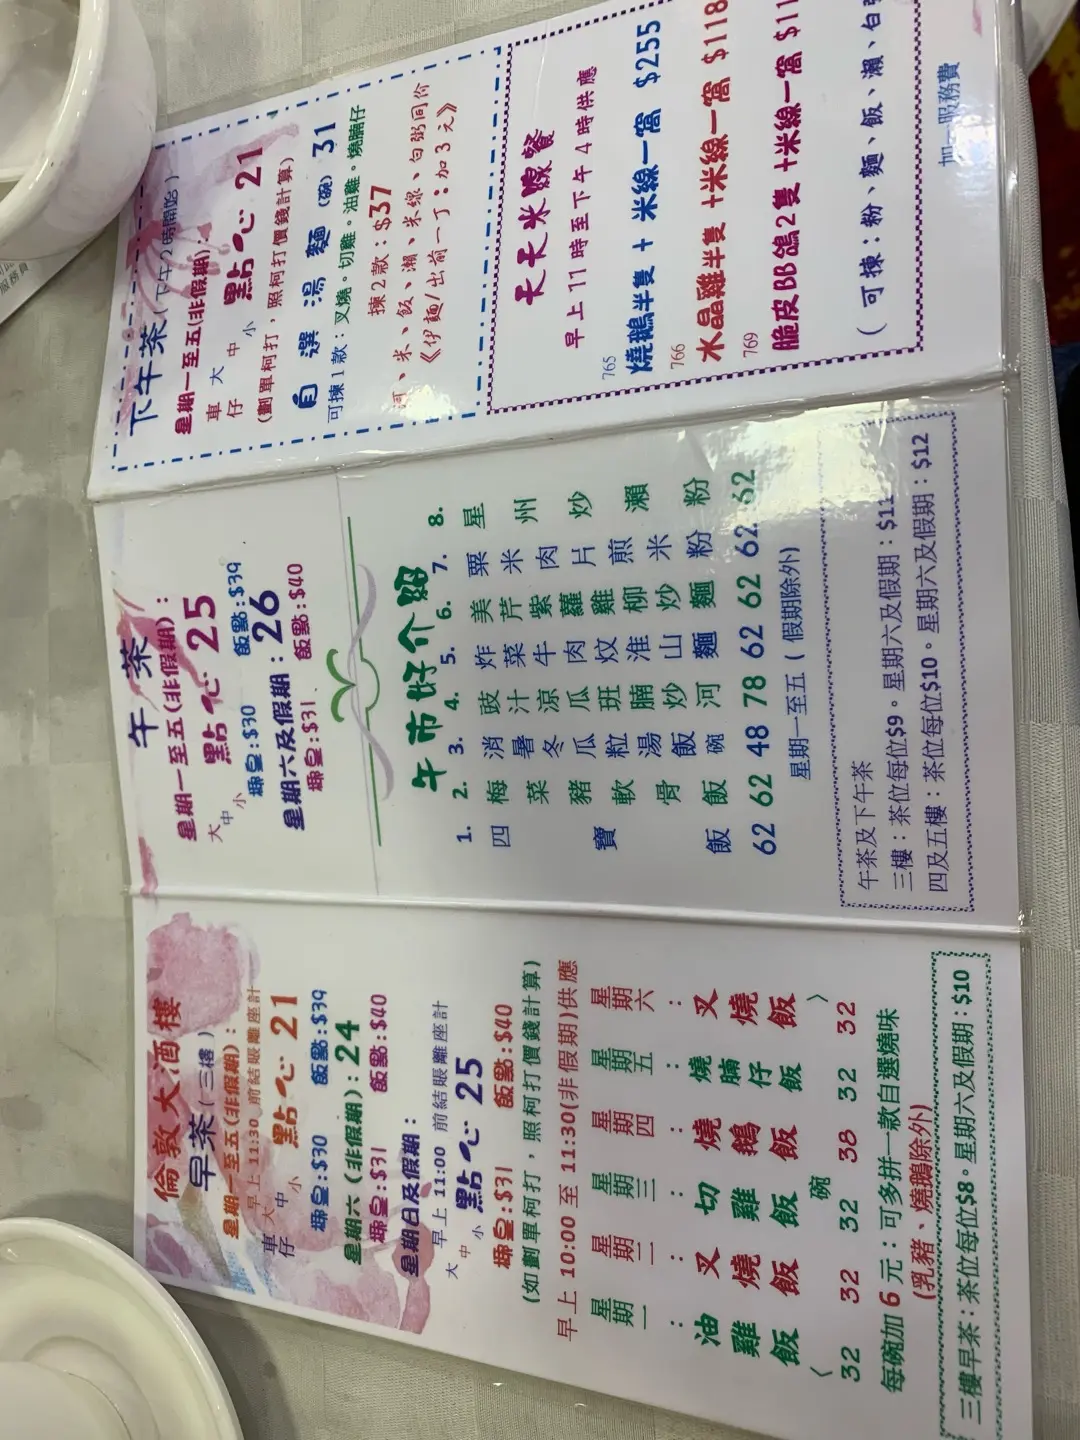 倫敦大酒樓
早茶(三樓)
星期一至五(非假期):
早上 11:30 前結賬離座計
車仔 大中小 點心 21
操皇:$30 飯點:$39
星期六(非假期):24
操皇:$31 飯點:$40
星期日及假期:
早上 11:00 前結賬離座計
大中小 點心 25
操皇:$31 飯點:$40
(如劃單柯打,照柯打價錢計算)
早上 10:00 至 11:30(非假期)供應
星期一:油雞飯 32
星期二:叉燒飯 32
星期三:切雞飯 32
星期四:燒鵝飯 38
星期五:燒腩仔飯 32
星期六:叉燒飯 32
〈碗〉
每碗加6元:可多拼一款自選燒味
(乳豬、燒鵝除外)
三樓早茶:茶位每位$8。星期六及假期:$10
午茶
星期一至五(非假期):
大中小 點心 25
操皇:$30 飯點:$39
星期六及假期:26
操皇:$31 飯點:$40
午市好介紹
1. 四寶飯 62
2. 梅菜豬軟骨飯 62
3. 消暑冬瓜粒湯飯 碗 48
4. 豉汁涼瓜班腩炒河 78
5. 炸菜牛肉炆淮山麵 62
6. 美芹紫蘿雞柳炒麵 62
7. 粟米肉片煎米粉 62
8. 星州炒瀨粉 62
星期一至五(假期除外)
午茶及下午茶
三樓:茶位每位$9。星期六及假期:$11
四及五樓:茶位每位$10。星期六及假期:$12
下午茶(下午2時開始)
星期一至五(非假期):
車仔 大中小 點心 21
(劃單柯打,照柯打價錢計算)
自選湯麵(碗) 31
可揀1款:叉燒。切雞。油雞。燒腩仔
揀2款:$37
河、米、飯、瀨、米線、白粥同价
《伊麵/出前一丁:加3元》
天天米線餐
早上11時至下午4時供應
765 燒鵝半隻 + 米線一窩 $255
766 水晶雞半隻 +米線一窩 $118
769 脆皮BB鴿2隻 +米線一窩 $11
(可揀:粉、麵、飯、瀨、白
加一服務費
服務員